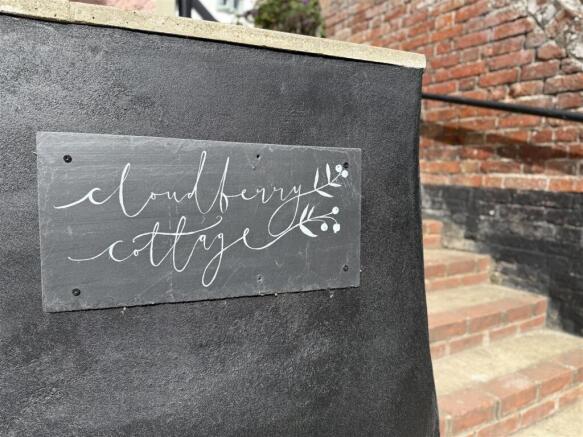 cloudberry
cottage